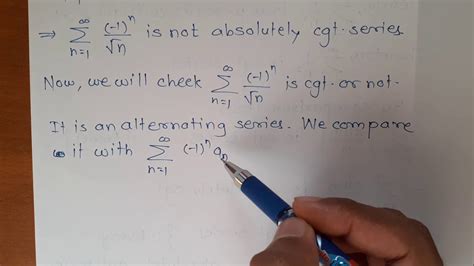 ⇒ ∞∑n=1 (-1)^n/√n is not absolutely cgt. series
Now, we will check ∞∑n=1 (-1)^n/√n is cgt. or not.
It is an alternating series. We compare
it with ∞∑n=1 (-1)^n a_n